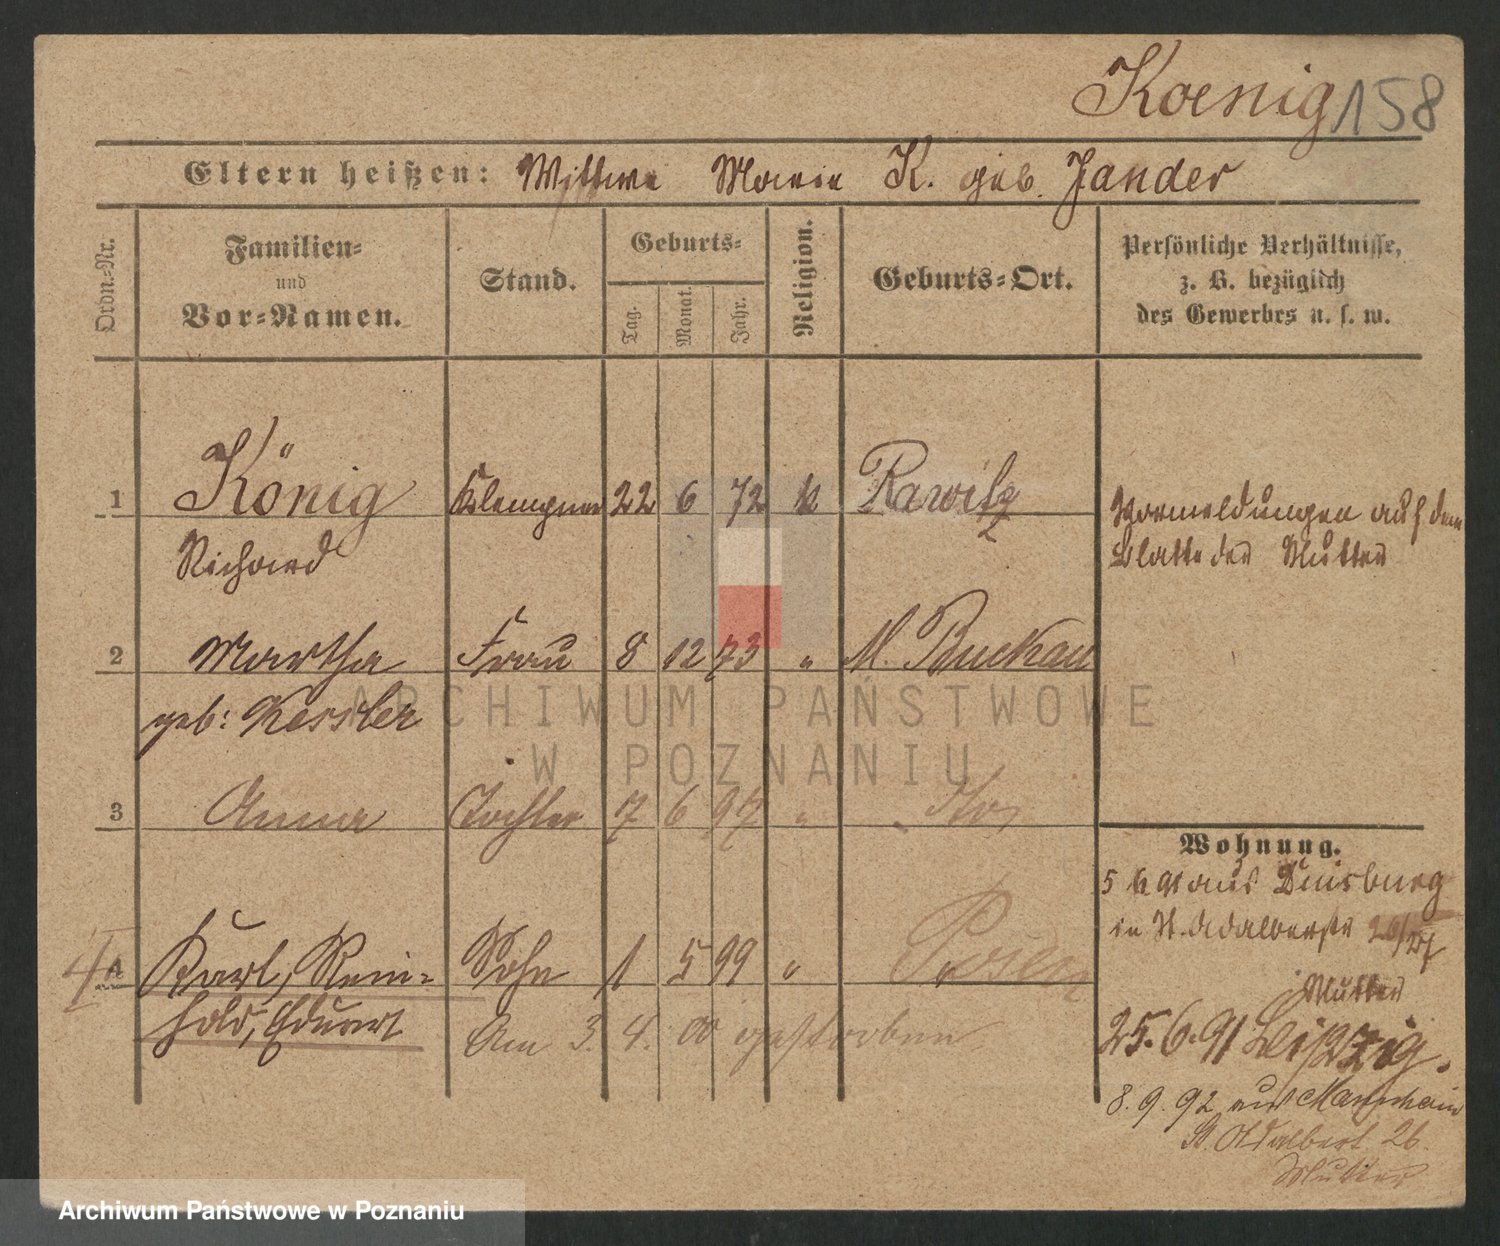 Koenig 158
Eltern heißen: Wittwe Marie K. geb. Jander
Ordn.-Nr.
Familien-
und
Vor-Namen.
Stand.
Geburts-
Tag.
Monat.
Jahr.
Religion.
Geburts-Ort.
Persönliche Verhältnisse,
z. B. bezüglich
des Gewerbes u. s. w.
1 König Klempner 22 6 72 k Rawitz
Richard
Vormeldungen auf dem
Blatte der Mutter
2 Martha Frau 8 12 73 " M. Buckau
geb: Kessler
3 Anna Tochter 7 6 97 "
4 Karl, Rein- Sohn 1 5 99 " Posen
hold, Eduart
Am 3. 4. 00 gestorben
Wohnung.
5 6 91 aus Duisburg
in St. Adalbertstr 26/27
Mutter
25.6.91 Leipzig.
8.9.92 aus Mannheim
St. Adalbert 26
Mutter
ARCHIWUM PAŃSTWOWE
W POZNANIU
Archiwum Państwowe w Poznaniu